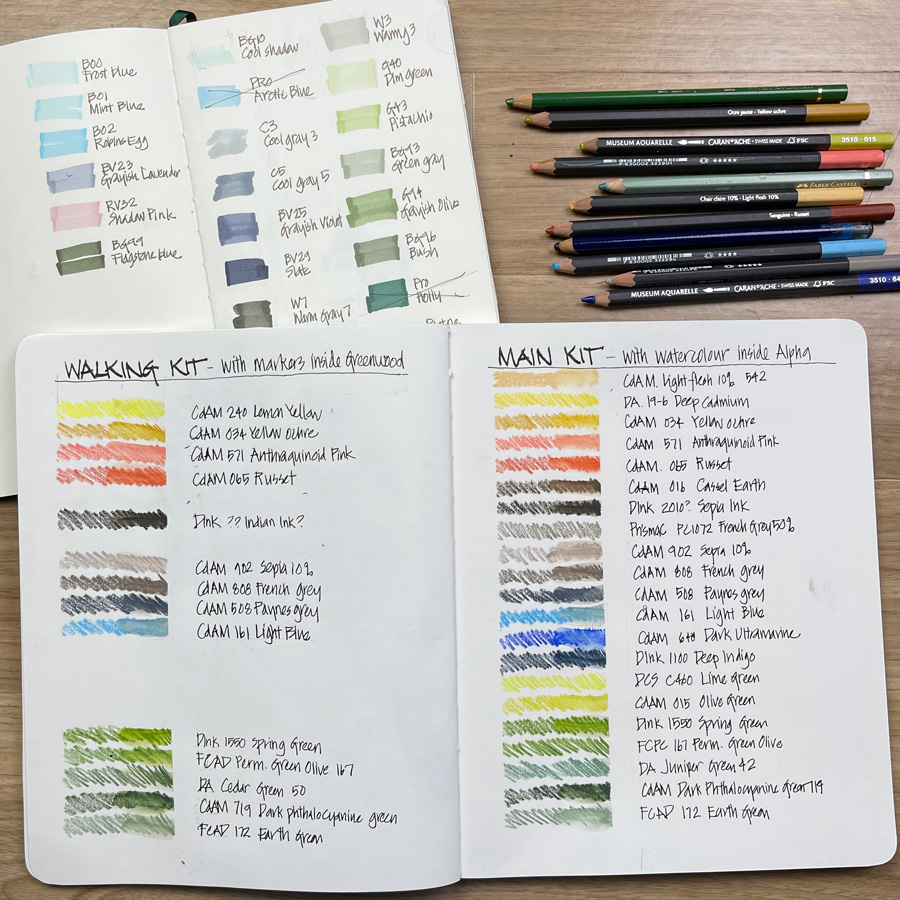 B00
Frost blue
B01
Mint Blue
B02
Robins Egg
BV23
Grayish Lavender
RV32
Shadow Pink
BG99
Flagstone blue
BG10
Cool shadow
Pro
Arctic Blue
C3
Cool gray 3
C5
Cool gray 5
BV25
Grayish Violet
BV29
Slate
W7
Warm Gray 7
W3
Warmy 3
G40
Dim green
G43
Pistachio
BG93
Green gray
G94
Grayish Olive
BG96
Bush
Pro
Holly
Ocre jaune - Yellow ochre
MUSEUM AQUARELLE CARAN D'ACHE • SWISS MADE FSC 3510 - 015
FABER-CASTELL
Chair claire 10% - Light flesh 10%
Sanguine - Russet
MUSEUM AQUARELLE CARAN D'ACHE • SWISS MADE FSC 3510 - 64
WALKING KIT - with markers inside Greenwood
CdAM 240 Lemon Yellow
CdAM 034 Yellow ochre
CdAM 571 Anthraquinoid Pink
CdAM 065 Russet
DInk ?? Indian Ink?
CdAM 902 Sepia 10%
CdAM 808 French Grey
CdAM 508 Paynes grey
CdAM 161 Light Blue
DInk 1550 Spring Green
FCAD Perm. Green Olive 167
DA Cedar Green 50
CdAM 719 Dark phthalocyanine green
FCAD 172 Earth Green
MAIN KIT - with watercolour inside Alpha
CdAM. Light flesh 10% 542
DA. 19-6 Deep Cadmium
CdAM 034 Yellow ochre
CdAM 571 Anthraquinoid Pink
CdAM. 065 Russet
CdAM 016 Cassel Earth
DInk 2010? Sepia Ink
PrismaC PC1072 French Grey 50%
CdAM 902 Sepia 10%
CdAM 808 French grey
CdAM 508 Paynes grey
CdAM 161 Light Blue
CdAM Dark Ultramarine
DInk 1100 Deep Indigo
DCS C460 Lime Green
CdAM 015 Olive Green
DInk 1550 Spring Green
FCPC 167 Perm. Green Olive
DA Juniper Green 42
CdAM Dark Phthalocyanine Green 719
FCAD 172 Earth Green